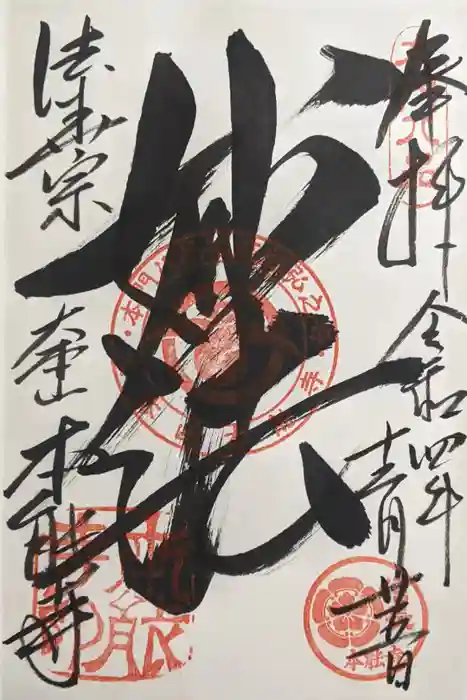 奉拝
令和四年
十一月廿五日
妙法
法華宗
大本山
本能寺
本能寺